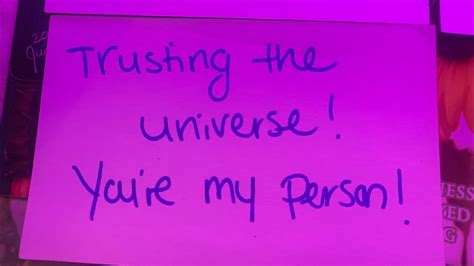 Trusting the
universe!
You're my person!